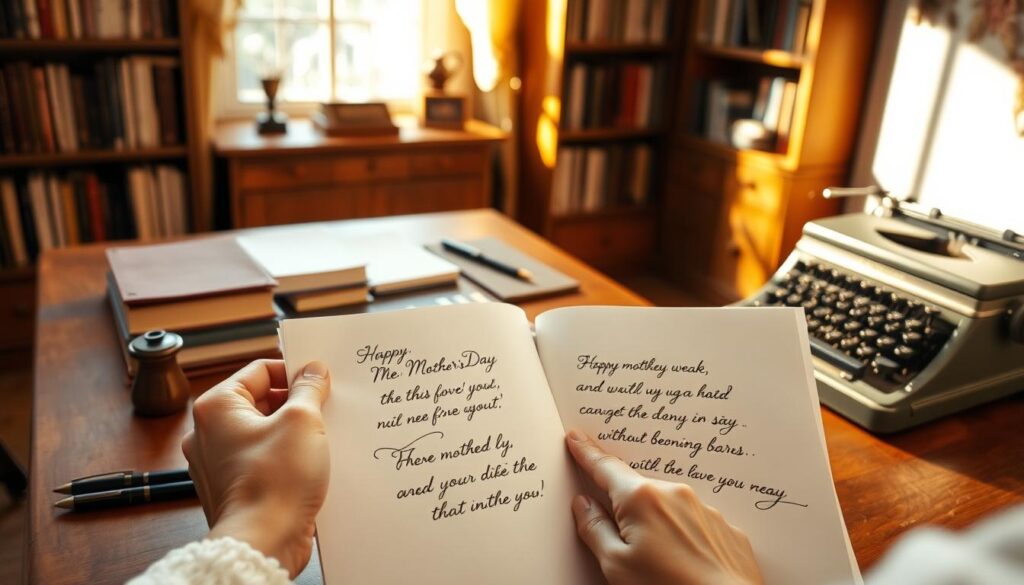 Happy,
Me, Mother's Day
the this fove! youd,
nuil nee fine ayout!
There mothed ly,
and your dike the
that in the you!
Happy mothey weak,
and wutl uy uga hatd
can get the dany in sæy..
without beoning bares..
with the lave you neay